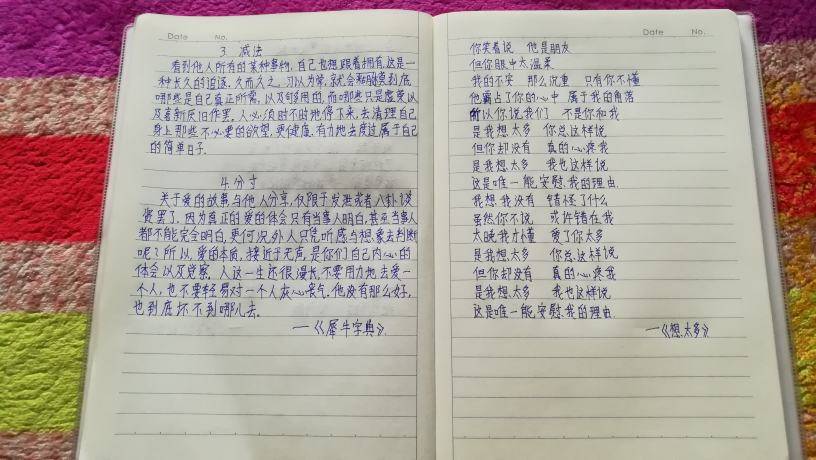 Date No.
3 减法
看到他人所有的某种事物,自己也想跟着拥有,这是一
种长久的追逐,久而久之,习以为常,就会
哪些是自己真正所需,以及够用的,而哪些只是虚荣以
及喜新厌旧作罢。人必须时不时地停下来,去清理自己
身上那些不必要的欲望,更健康、有力地去度过属于自己
的简单日子.
4.分寸
关于爱的故事与他人分享,仅限于发泄或者八卦谈
资罢了,因为真正的爱的体会只有当事人明白,甚至当事人
都不能完全明白,更何况外人只凭听感与想象去判断
呢?所以,爱的本质,接近于无声,是你们自己内心的
体会以及觉察。人这一生还很漫长,不要用力地去爱一
个人,也不要轻易对一个人灰心丧气。他没有那么好,
也到底坏不到哪儿去.
—《犀牛字典》.
Date No.
你笑着说 他是朋友
但你眼中太温柔
我的不安 那么沉重 只有你不懂
他霸占了你的心中 属于我的角落
所以你说我们 不是你和我
是我想太多 你总这样说
但你却没有 真的心疼我
是我想太多 我也这样说
这是唯一能安慰我的理由.
我想我没有 错怪了什么
虽然你不说 或许错在我
太晚我才懂 爱了你太多
是我想太多 你总这样说
但你却没有 真的心疼我
是我想太多 我也这样说
这是唯一能安慰我的理由.
—《想太多》